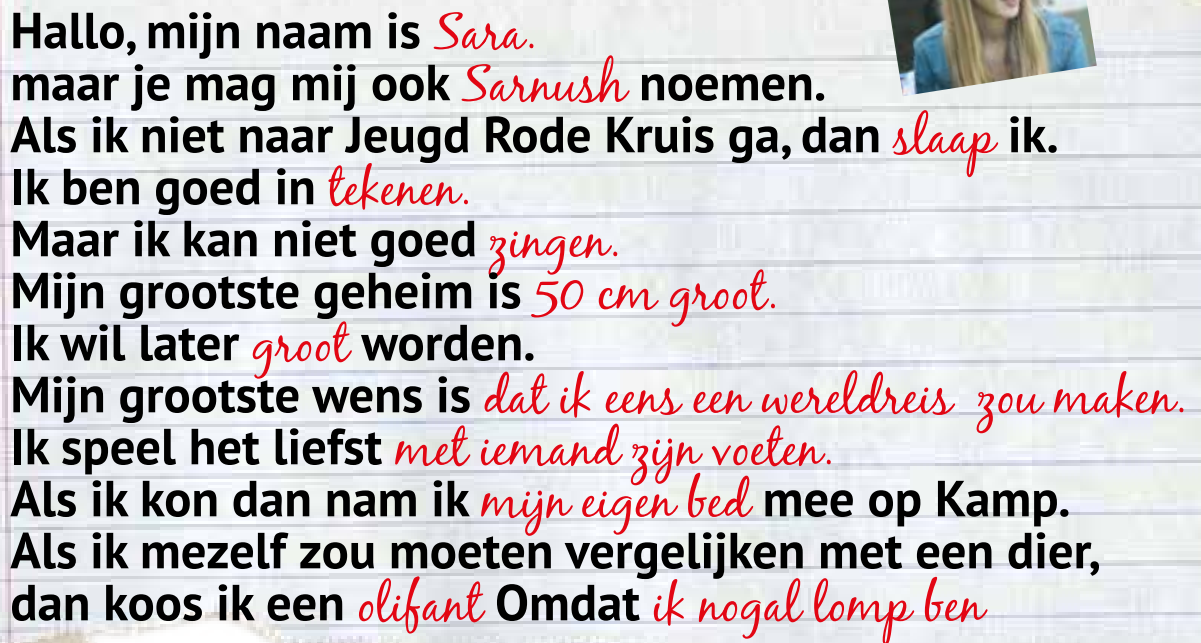 Hallo, mijn naam is Sara.
maar je mag mij ook Sarnush noemen.
Als ik niet naar Jeugd Rode Kruis ga, dan slaap ik.
Ik ben goed in tekenen.
Maar ik kan niet goed zingen.
Mijn grootste geheim is 50 cm groot.
Ik wil later groot worden.
Mijn grootste wens is dat ik eens een wereldreis zou maken.
Ik speel het liefst met iemand zijn voeten.
Als ik kon dan nam ik mijn eigen bed mee op Kamp.
Als ik mezelf zou moeten vergelijken met een dier,
dan koos ik een olifant Omdat ik nogal lomp ben